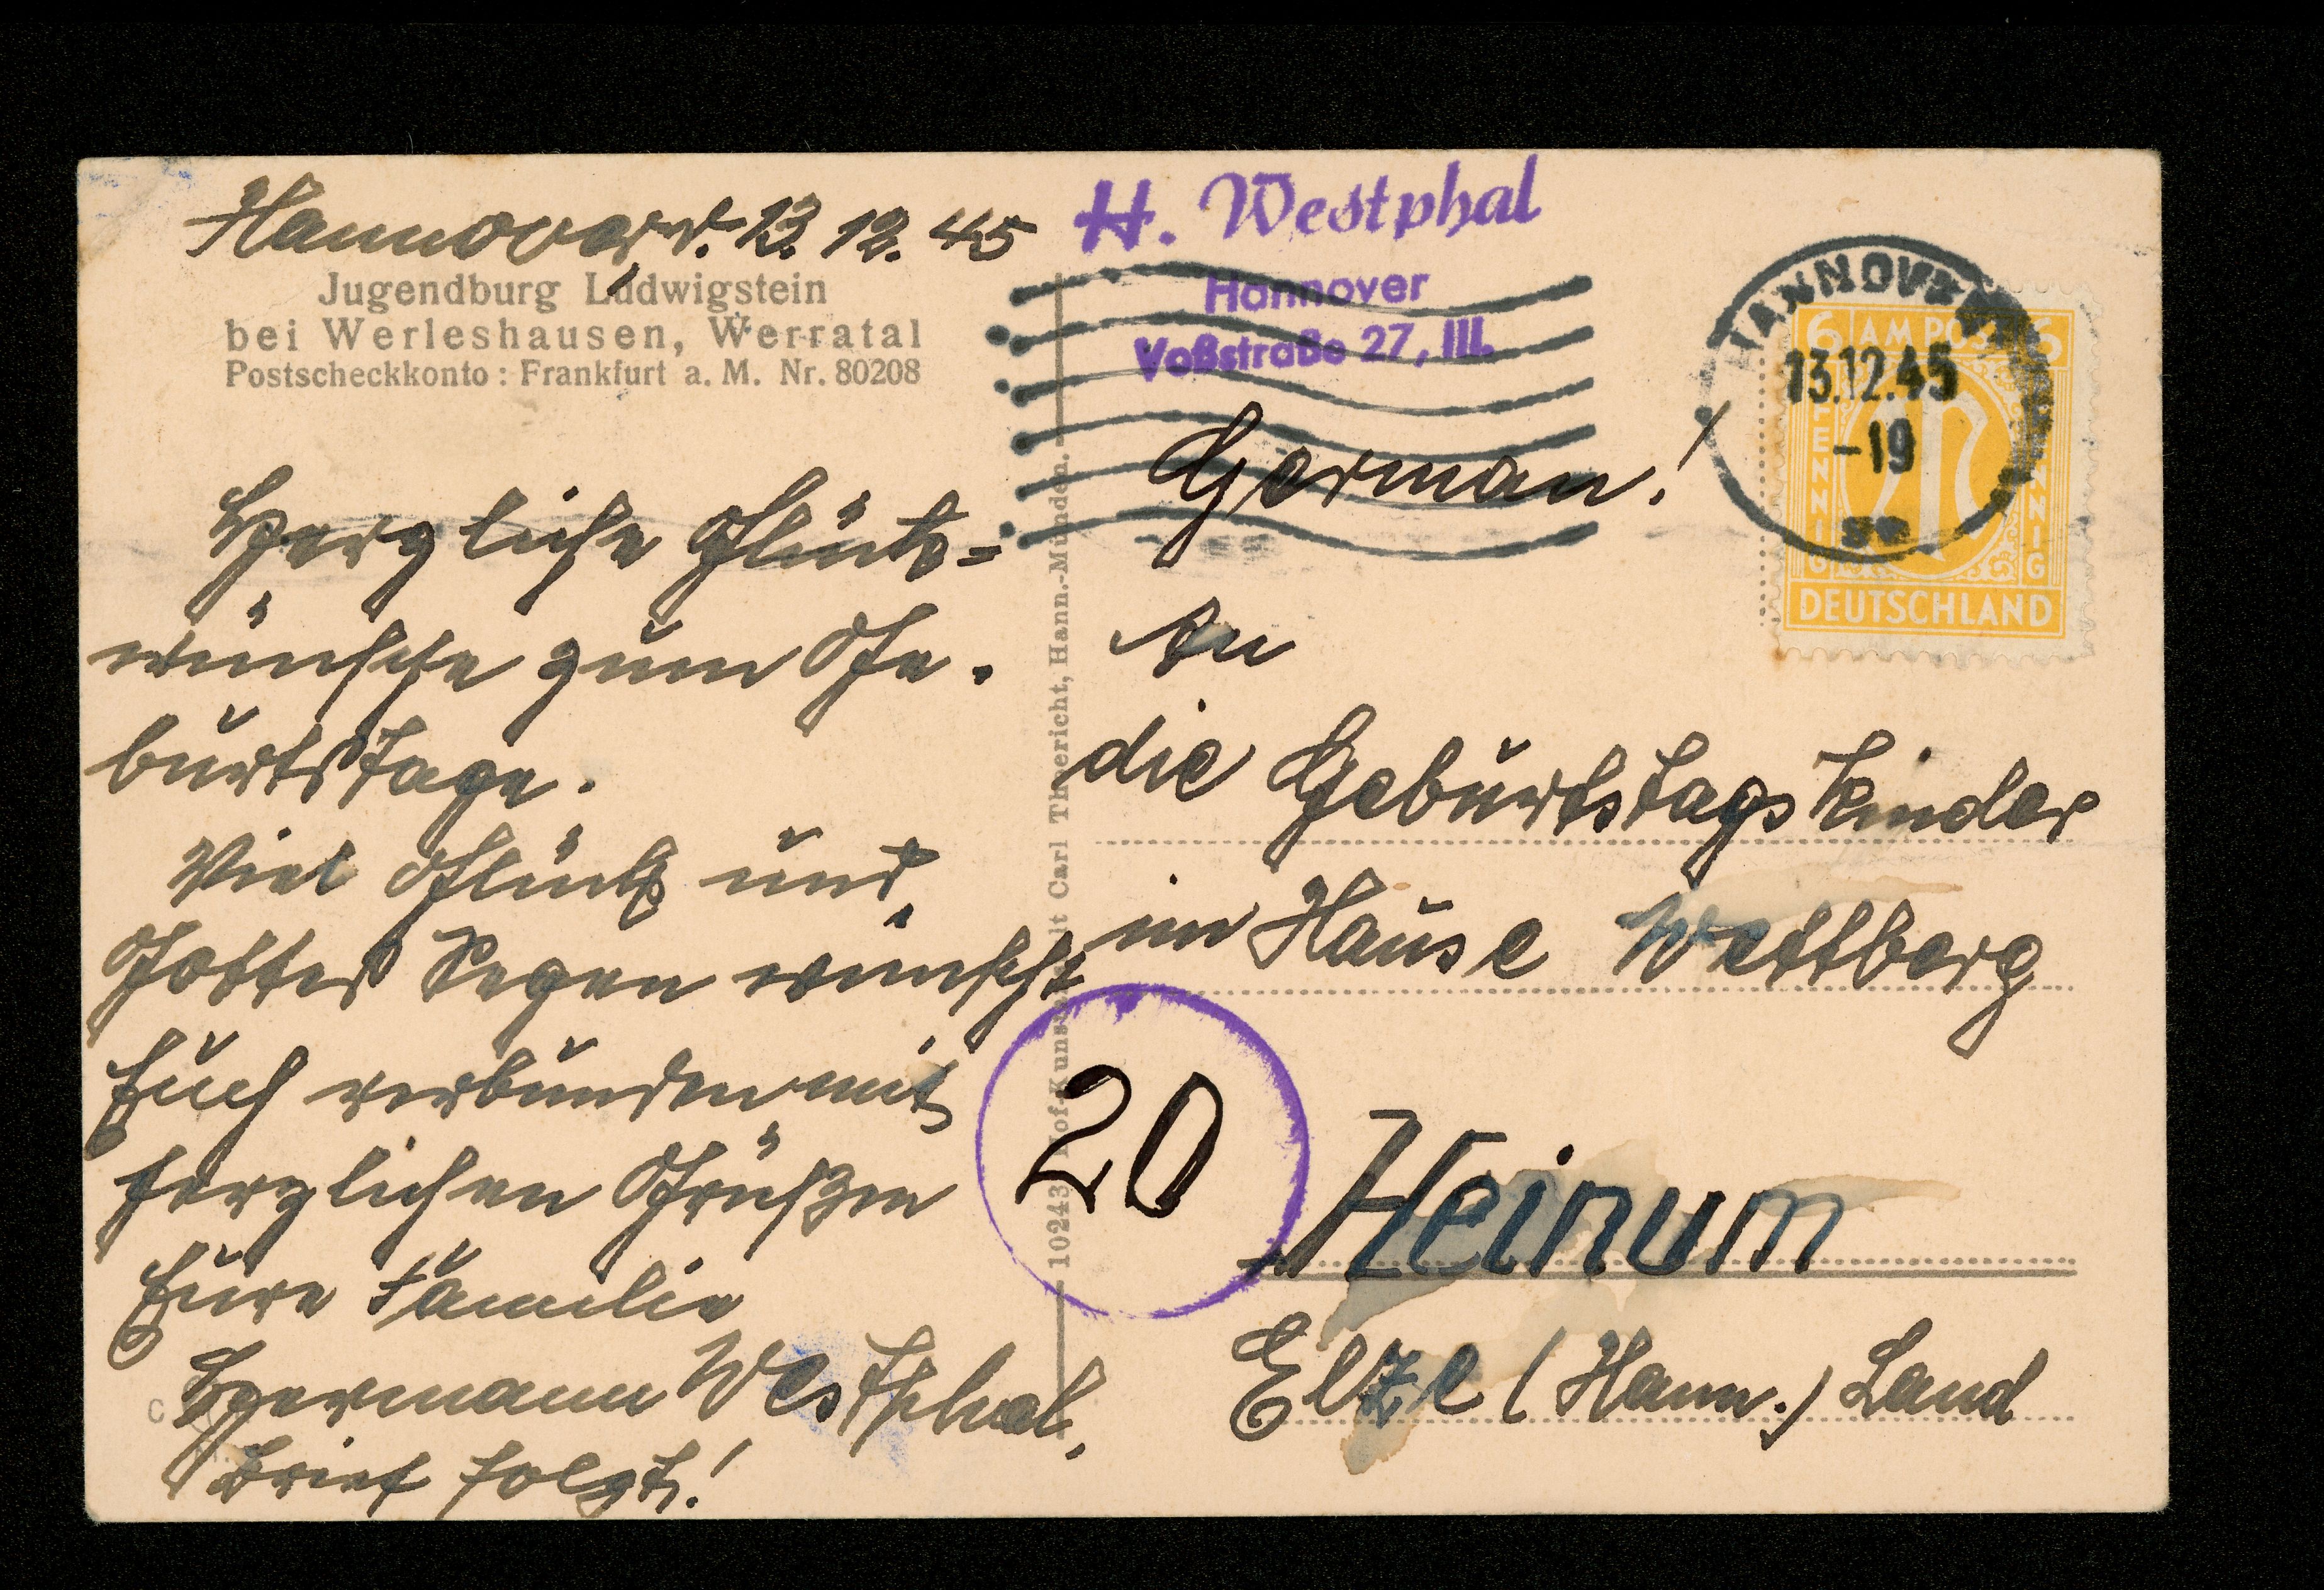 Hannover, d. 13. 12. 45
Jugendburg Ludwigstein
bei Werleshausen, Werratal
Postscheckkonto: Frankfurt a. M. Nr. 80208
Herzliche Glück=
wünsche zum Ge-
burtstage.
Viel Glück und
Gottes Segen wünscht
Euch verbunden mit
herzlichen Grüßen
Eure Familie
Hermann Westphal.
Brief folgt!
10243 Hof-Kunst Carl Thoericht, Hann.-Münden.
H. Westphal
Hannover
Voßstraße 27, III.
German!
HANNOVER
13.12.45
-19
6 AM POST 6
PFENNIG
PFENNIG
DEUTSCHLAND
An
die Geburtstagskinder
im Hause Wettberg
20
Heinum
Elze (Hann.) Land